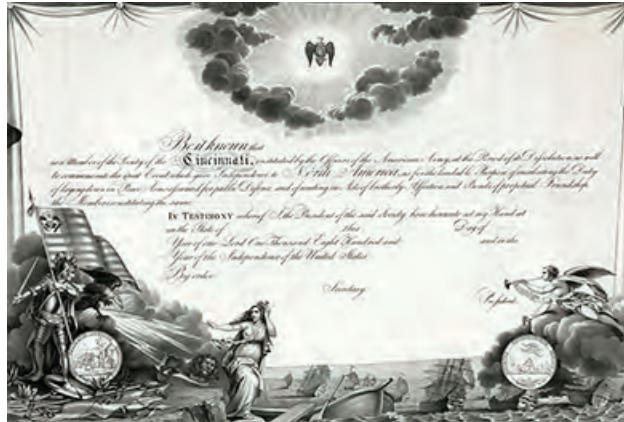 Be it known that
is a Member of the Society of the Cincinnati, instituted by the Officers of the American Army, at the Period of its Dissolution, as well
to commemorate the great Event which gave Independence to North America, as for the laudable Purpose of inculcating the Duty
of laying down in Peace Arms assumed for public Defence, and of uniting in Acts of brotherly Affection, and Bonds of perpetual Friendship
the Members constituting the same.
IN TESTIMONY whereof I, the President of the said Society have hereunto set my Hand at
in the State of this Day of
Year of our Lord One Thousand Eight Hundred and and in the
Year of the Independence of the United States.
By order
Secretary. President.